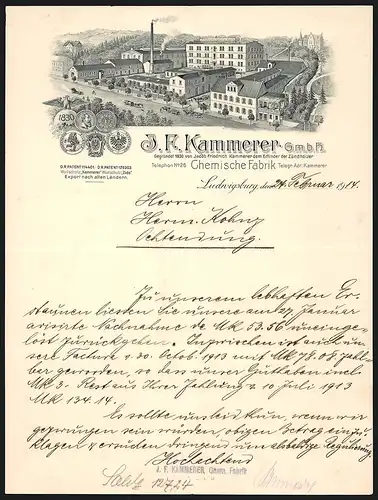 1830
J. F. Kammerer G.m.b.H.
Gegründet 1830 von Jacob Friedrich Kammerer dem Erfinder der Zündhölzer
D.R.PATENT 114401. D.R.PATENT 175002
Telephon No 28 Chemische Fabrik Telegr. Adr. Kammerer
Wortschutz „Kammerer" Wortschutz „Zebu"
Export nach allen Ländern.
Ludwigsburg, den 24. Februar 1914.
Herrn
Herm.
Ochtendung.
Zu unserem lebhaften Er-
staunen liessen Sie unsere am 27. Januar
avisirte Nachnahme de Mk 53.56 uneinge-
löst zurückgehen. Inzwischen ist auch un-
sere Factura v. 30. Octob. 1913 mit Mk 78.08 zahl-
bar geworden, so dass unser Guthaben incl.
Mk 3.- Rest aus Ihrer Zahlung v. 10. Juli 1913
Mk 134.14.
Es sollte uns leid thun, wenn wir
gezwungen sein würden, obigen Betrag einzu-
klagen & ersuchen dringend um Regulierung.
Hochachtend
J. F. KAMMERER, Chem. Fabrik